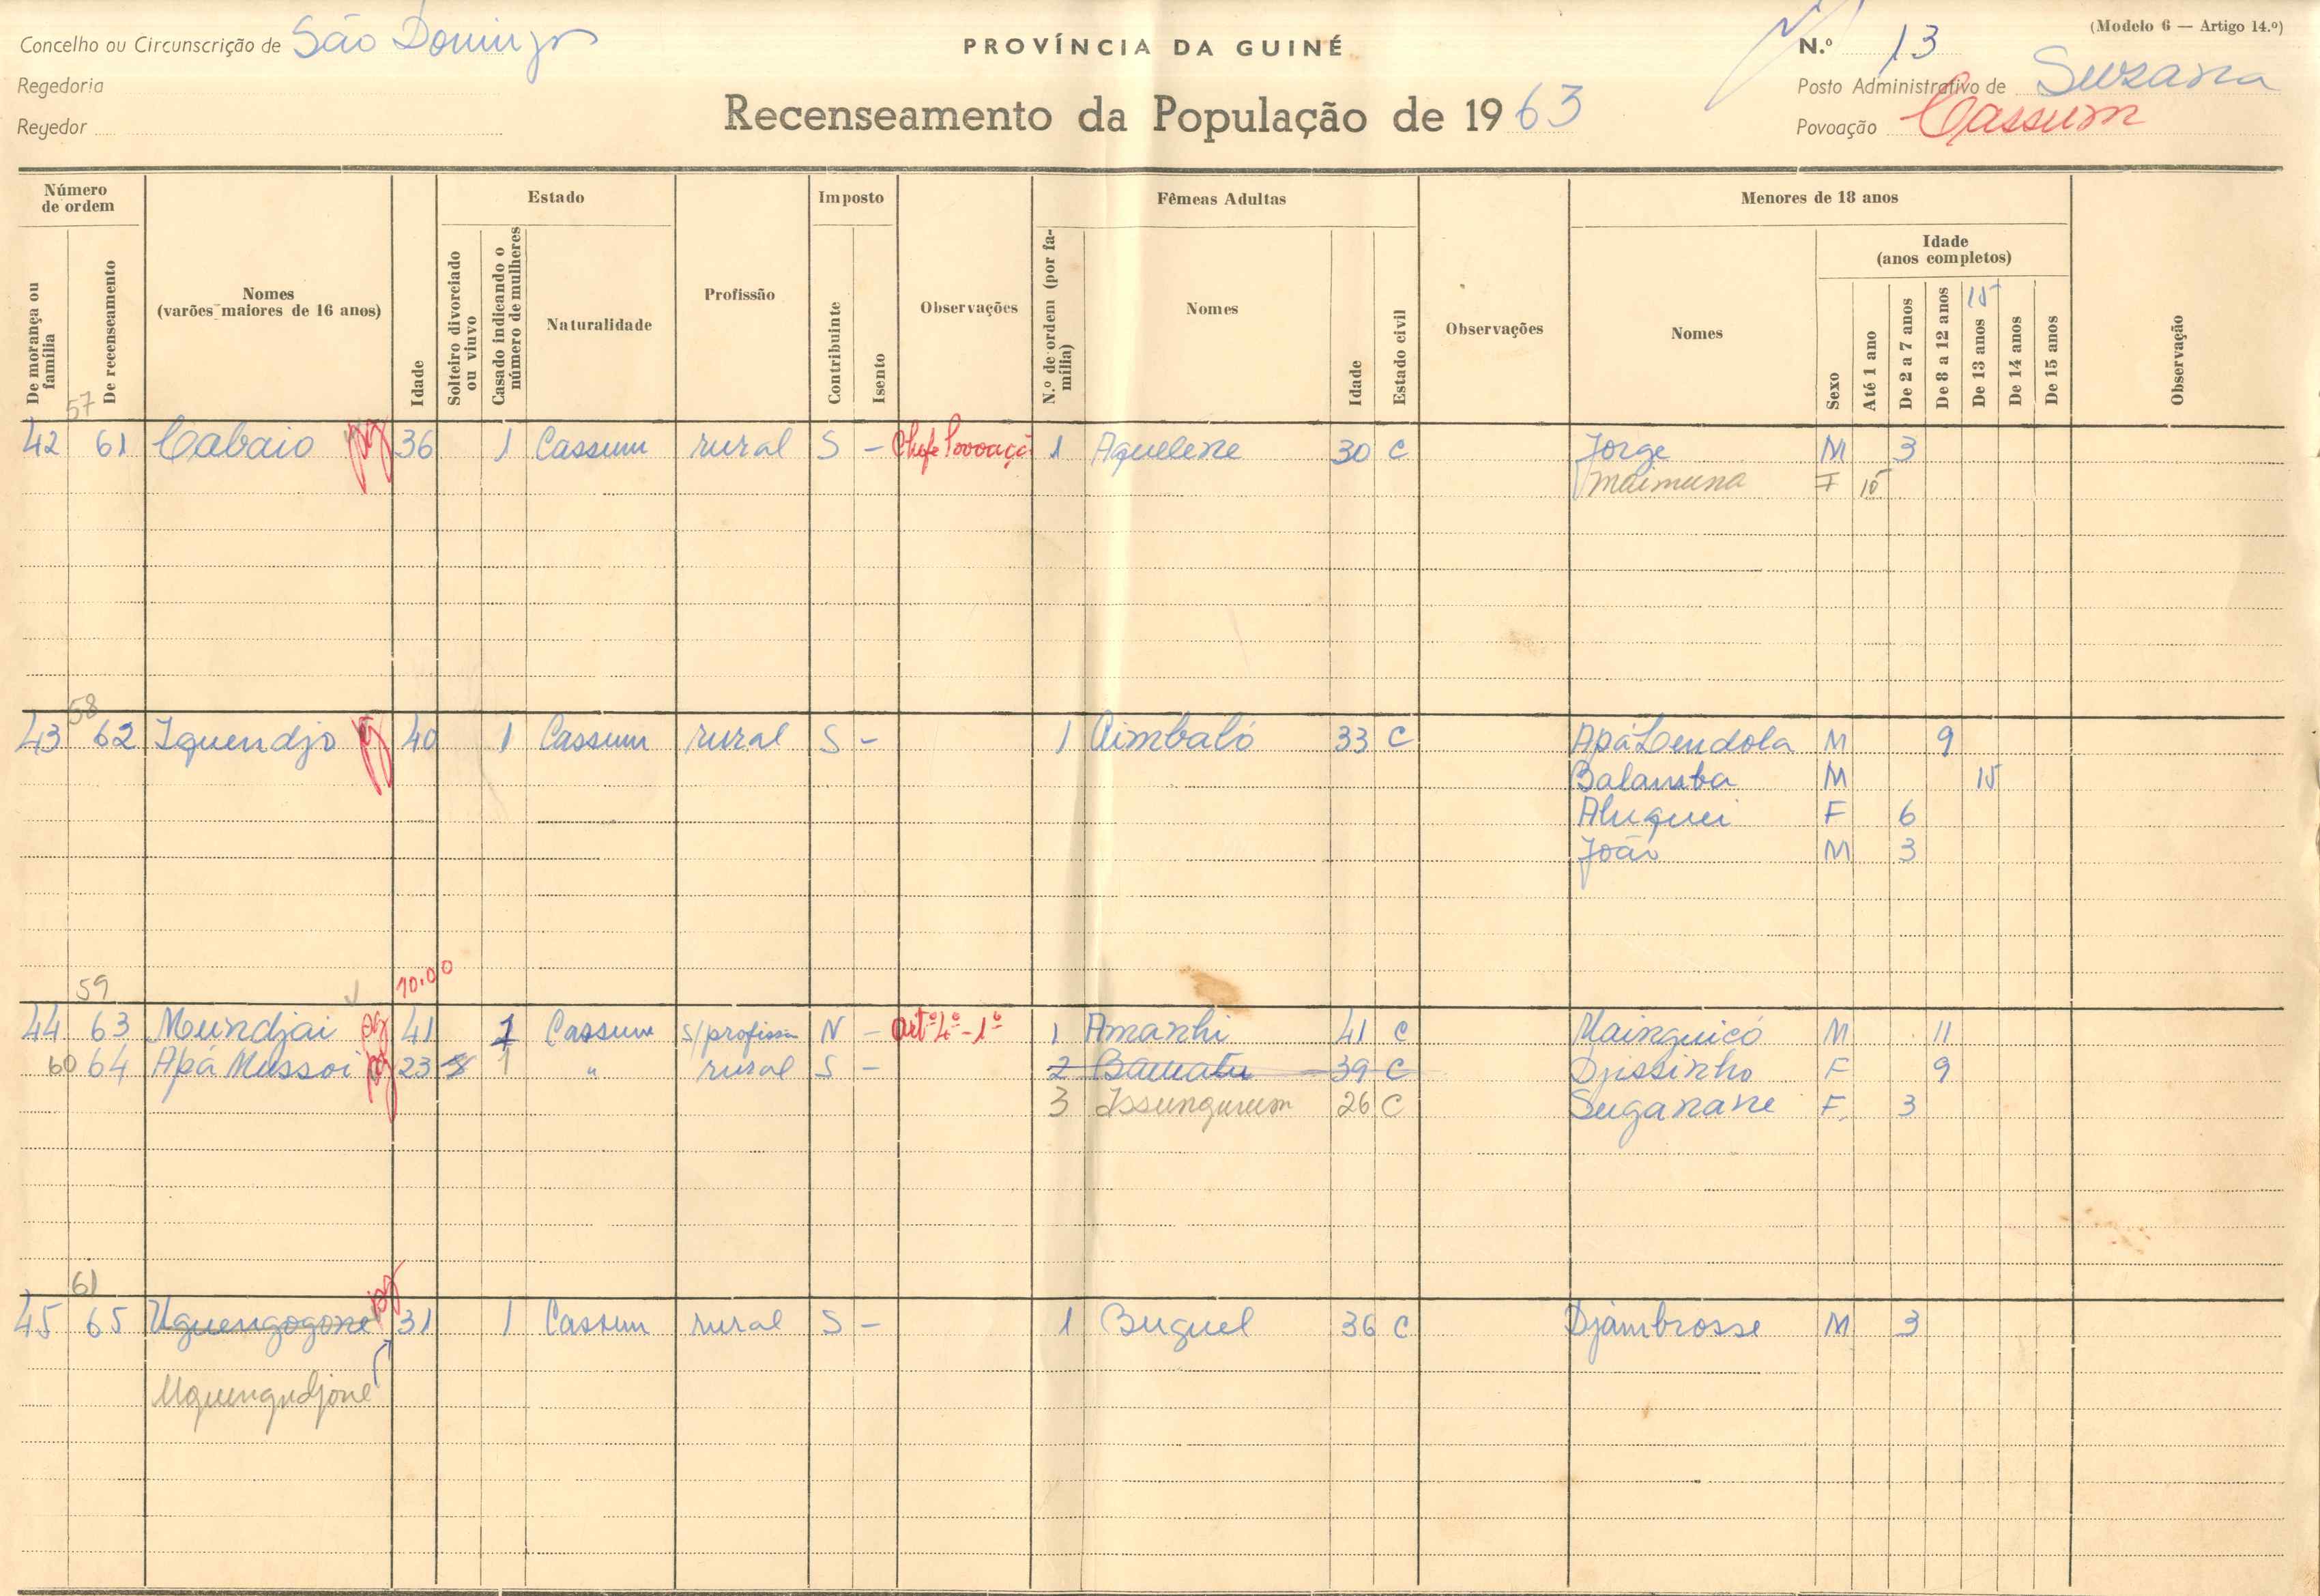 Concelho ou Circunscrição de São Domingos
PROVÍNCIA DA GUINÉ
N.º 13
(Modelo 6 — Artigo 14.º)
Regedoria
Posto Administrativo de Suzana
Regedor
Recenseamento da População de 1963
Povoação Cassum
Número de ordem
De morança ou família
De recenseamento
Nomes
(varões maiores de 16 anos)
Idade
Estado
Solteiro divorciado ou viuvo
Casado indicando o número de mulheres
Naturalidade
Profissão
Imposto
Contribuinte
Isento
Observações
Fêmeas Adultas
N.º de ordem (por família)
Nomes
Idade
Estado civil
Observações
Menores de 18 anos
Nomes
Sexo
Idade
(anos completos)
Até 1 ano
De 2 a 7 anos
De 8 a 12 anos
15
De 13 anos
De 14 anos
De 15 anos
Observação
57
42 61 Cabaio pg 36 1 Cassum rural S - Chefe Povoaçã 1 Aquelene 30 C Jorge M 3
Maimuna F 15
58
43 62 Iquendjo pg 40 1 Cassum rural S - 1 Aimbaló 33 C Apá Lendola M 9
Balamba M 15
Aluquei F 6
João M 3
59 10.00
44 63 Mundjai pg 41 1 Cassum s/profissão N - artº 4º - 1º 1 Amanhi 41 C Mainguicó M 11
60 64 Apá Mussoi pg 23 S 1 " rural S - 2 Bamatu 39 C Djissinho F 9
3 Issungurum 26 C Suganane F 3
61
45 65 Uguengogone pg 31 1 Cassum rural S - 1 Buguel 36 C Djambrosse M 3
Uguengudjone